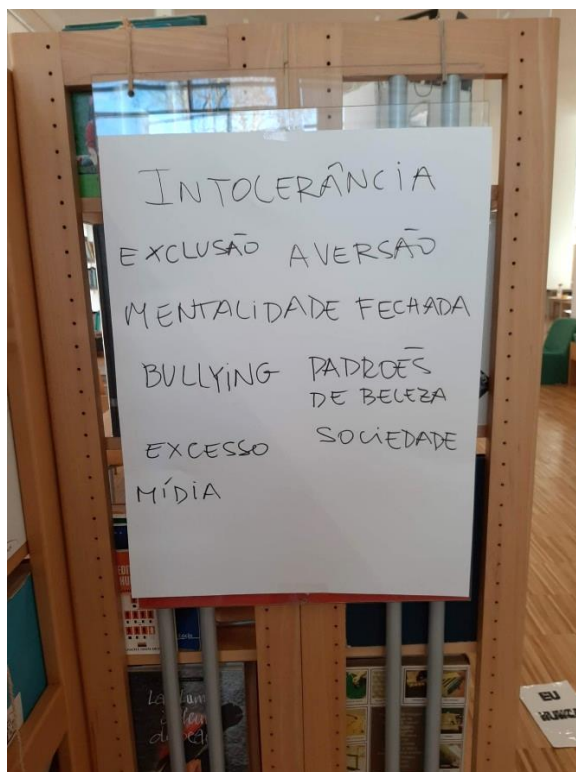 INTOLERÂNCIA
EXCLUSÃO AVERSÃO
MENTALIDADE FECHADA
BULLYING PADRÕES
DE BELEZA
EXCESSO SOCIEDADE
MÍDIA
EU